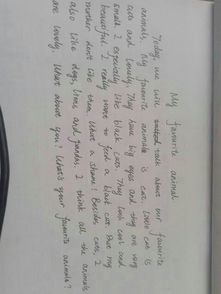 My favourite animal
Today, we will talk about our favourite
animals. My favourite animals is cat. Little cat is
cute and lovely. They have big eyes and they are very
small. I especially like black cats. They look cool and
beautiful. I really want to feed a black cat. But my
mother don't like them. What a shame! Besides cats, I
also like dogs, lions and pandas. I think all the animals
are lovely. What about you? What's your favourite animals?